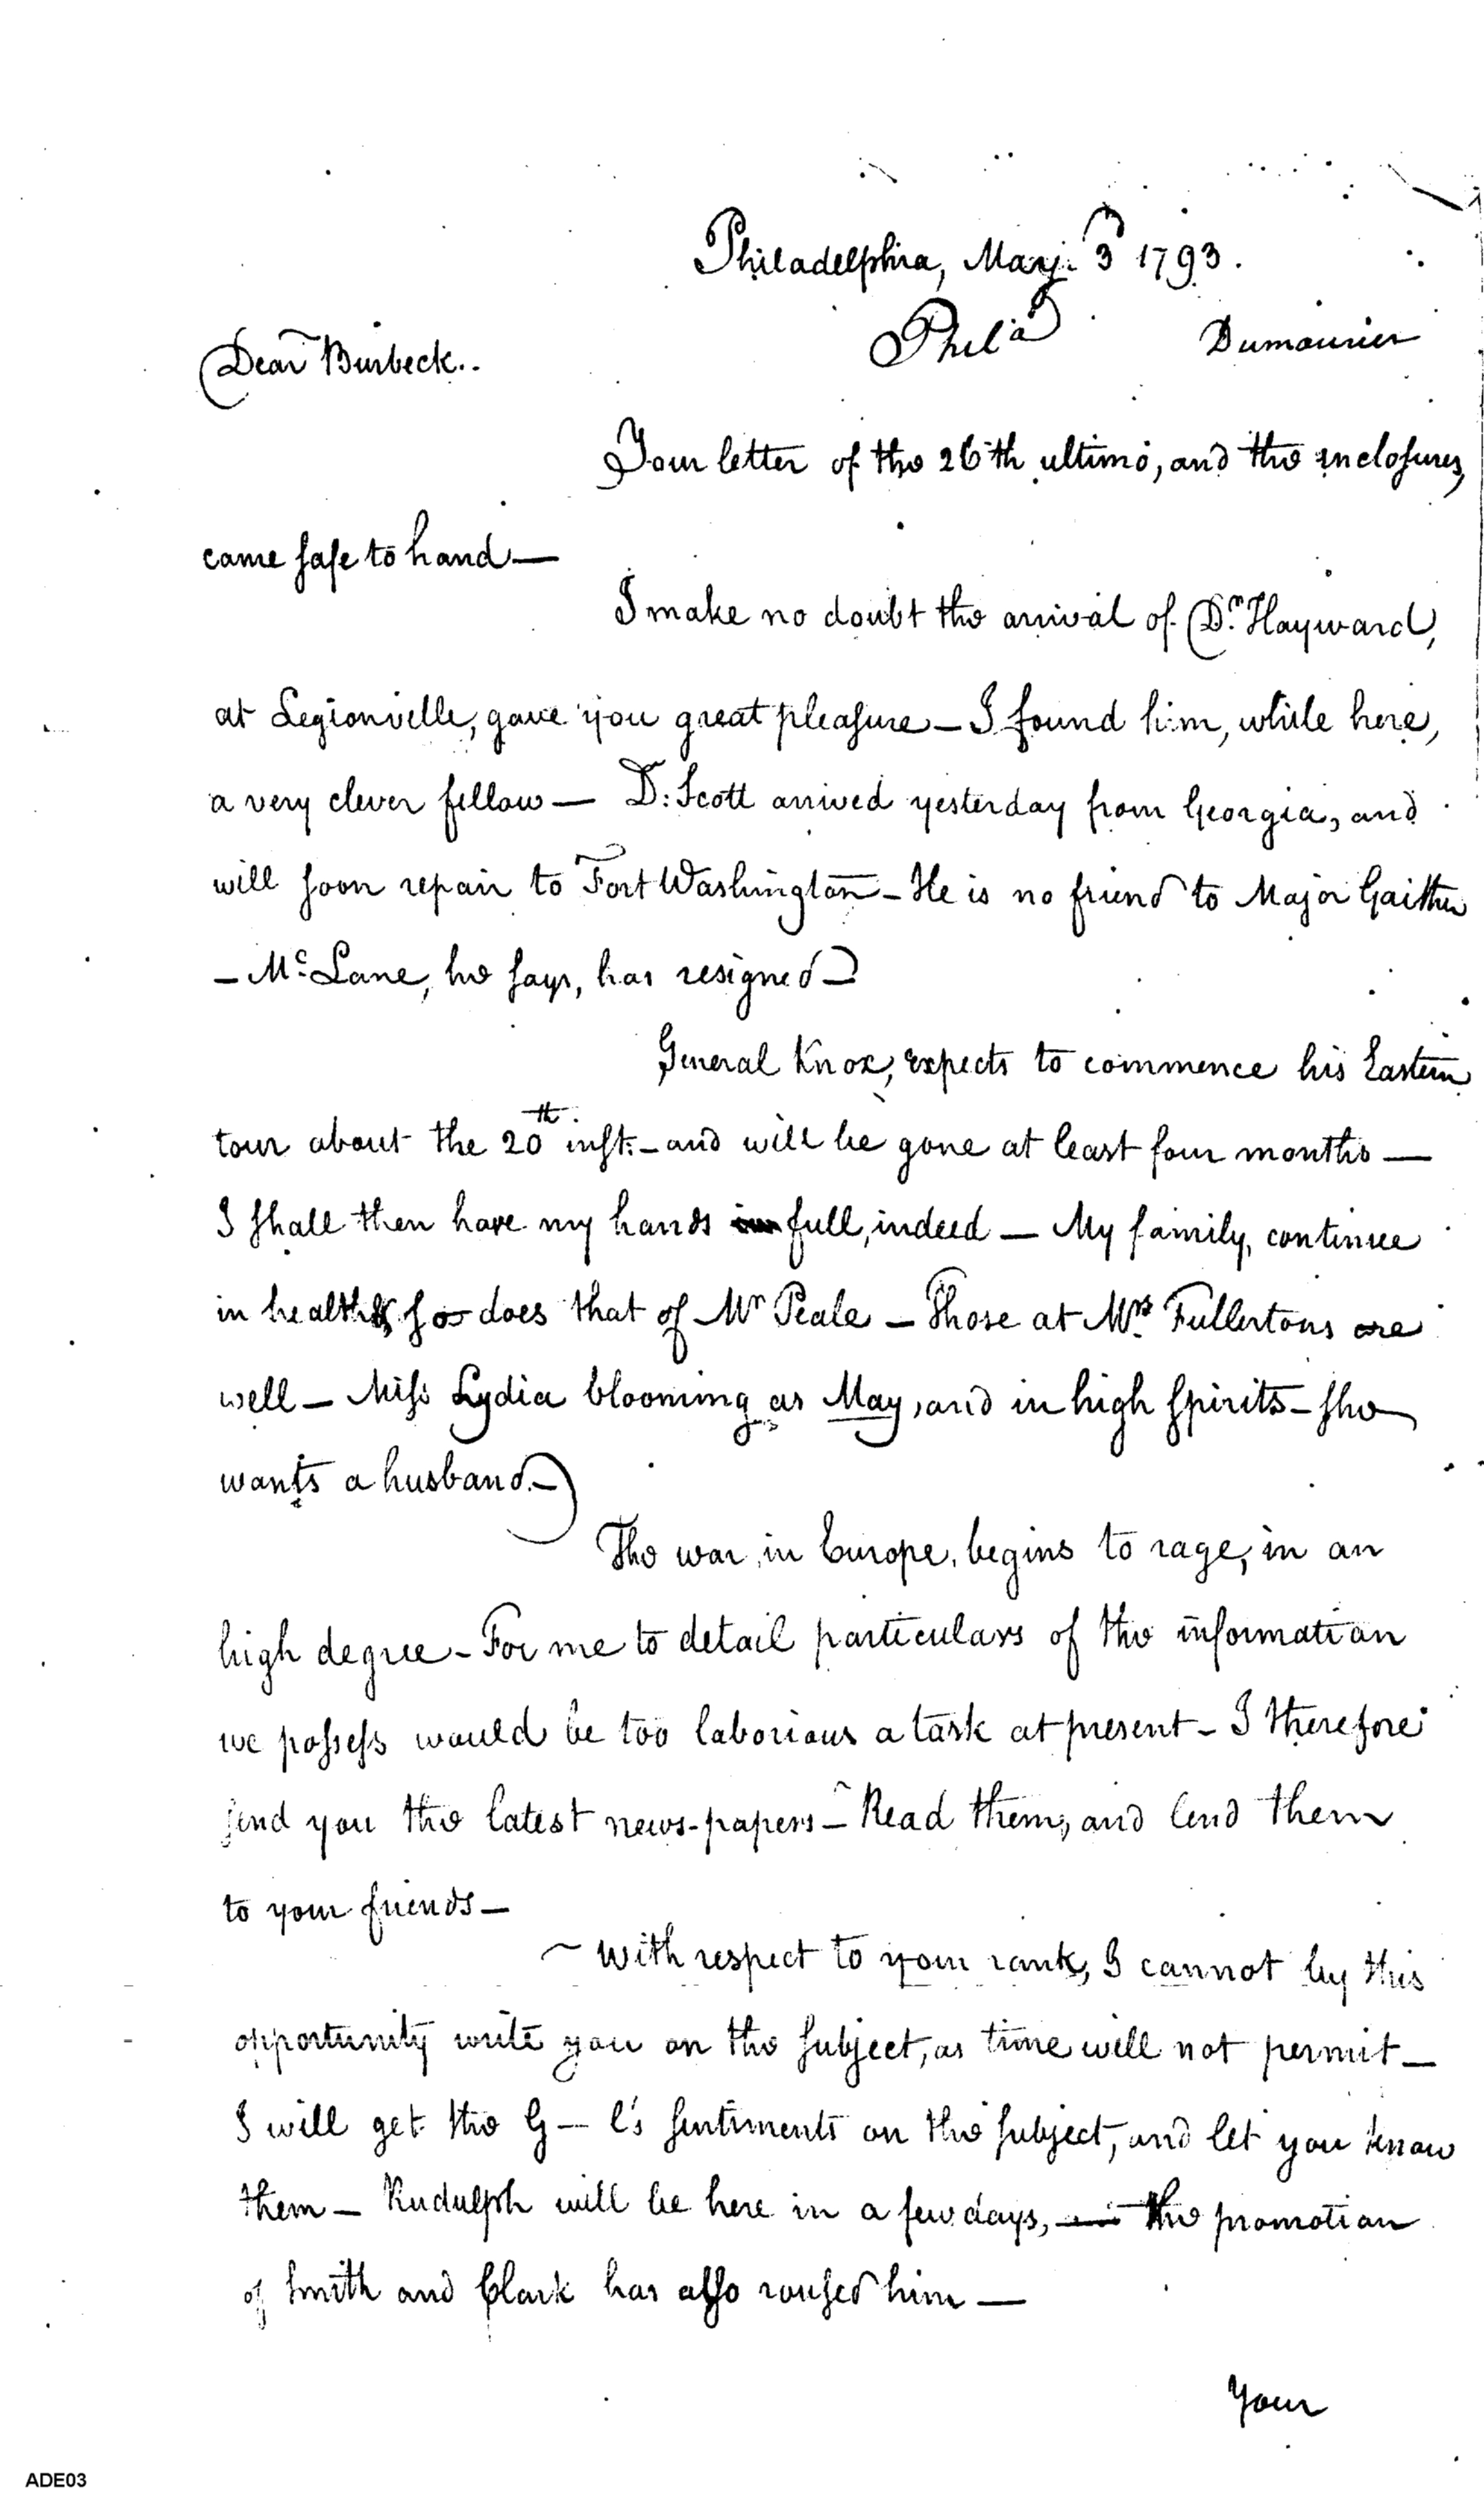 Philadelphia, May. 3 1793.
Phila Dumourier
Dear Burbeck..
Your letter of the 26th ultimo, and the inclosures,
came safe to hand—
I make no doubt the arrival of Dr. Hayward,
at Legionville, gave you great pleasure — I found him, while here,
a very clever fellow — D: Scott arrived yesterday from Georgia, and
will soon repair to Fort Washington — He is no friend to Major Gaither
— Mc. Lane, he says, has resigned —
General Knox, expects to commence his Eastern
tour about the 20th inst: — and will be gone at least four months —
I shall then have my hands full, indeed — My family, continue
in health, so does that of Mr Peale — Those at Mrs. Fullertons are
well — Miss Lydia blooming as May, and in high spirits — she
wants a husband. —
The war, in Europe, begins to rage, in an
high degree — For me to detail particulars of the information
we possess would be too laborious a task at present — I therefore
send you the latest news-papers — Read them, and lend them
to your friends —
~ With respect to your rank, I cannot by this
opportunity write you on the subject, as time will not permit —
I will get the G — l's sentiments on the subject, and let you know
them — Rudulph will be here in a few days, — the promotion
of Smith and Clark has also roused him —
Your
ADE03